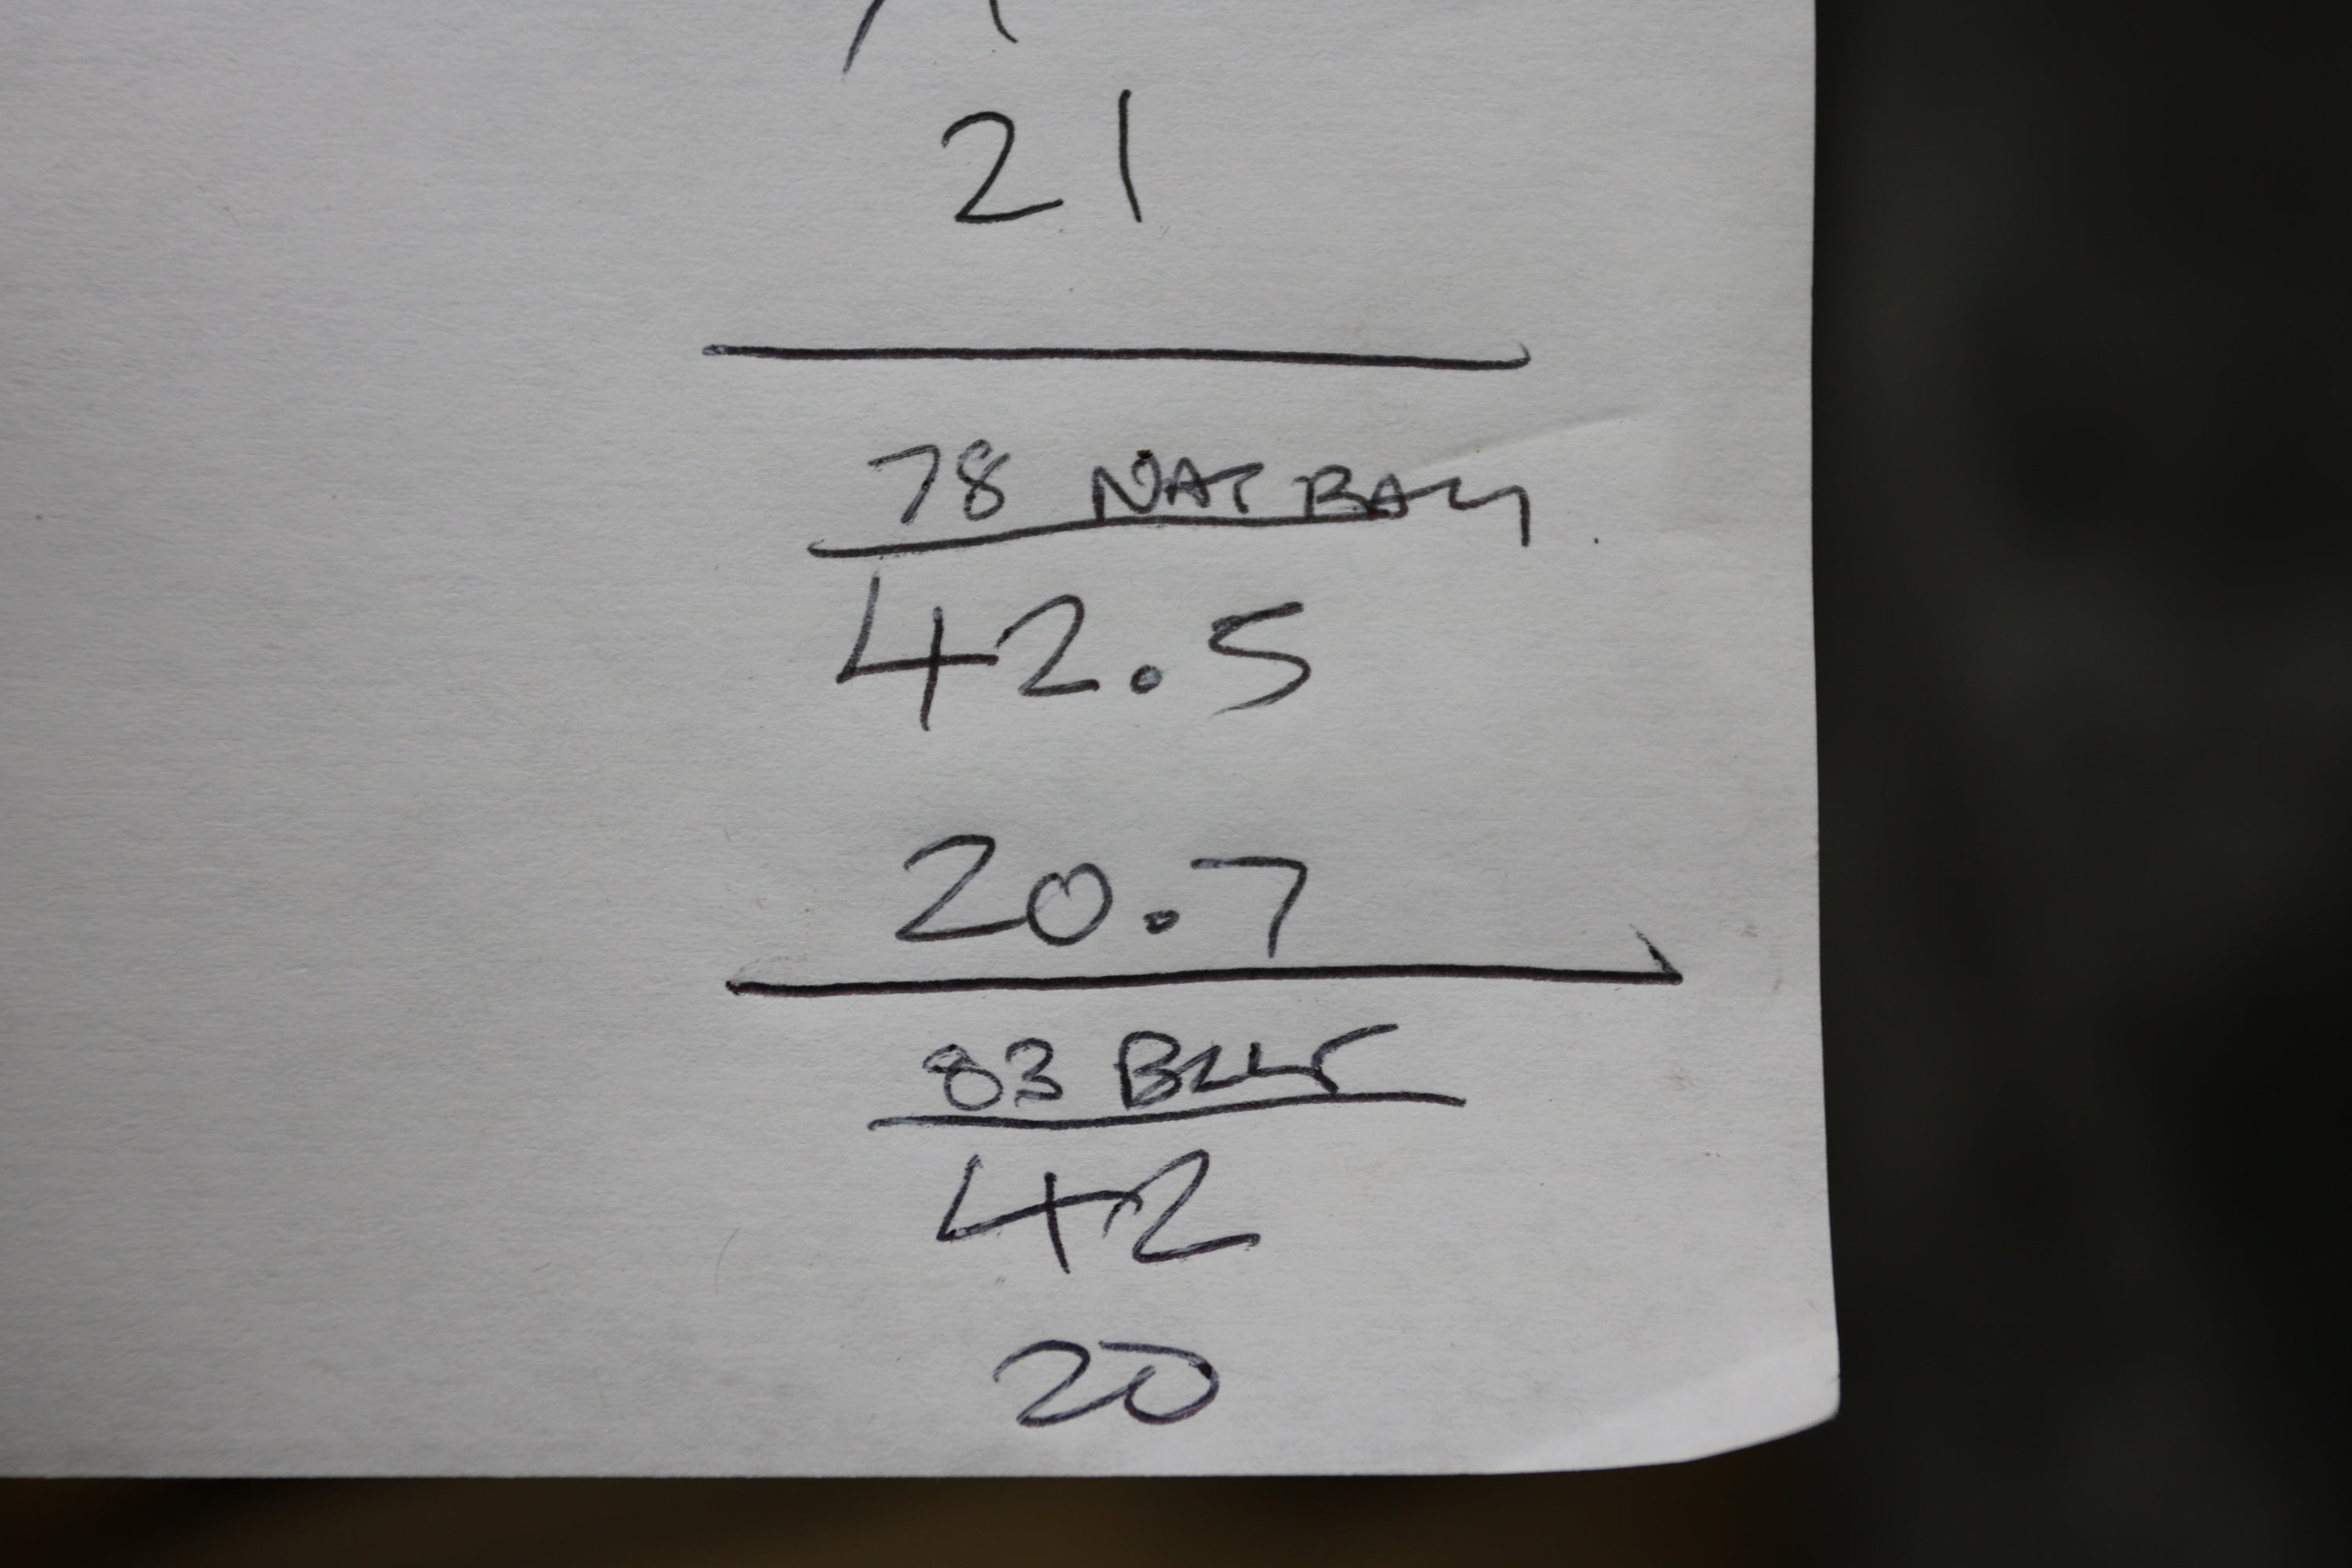 21
78 NAT
42.5
20.7
83
42
20